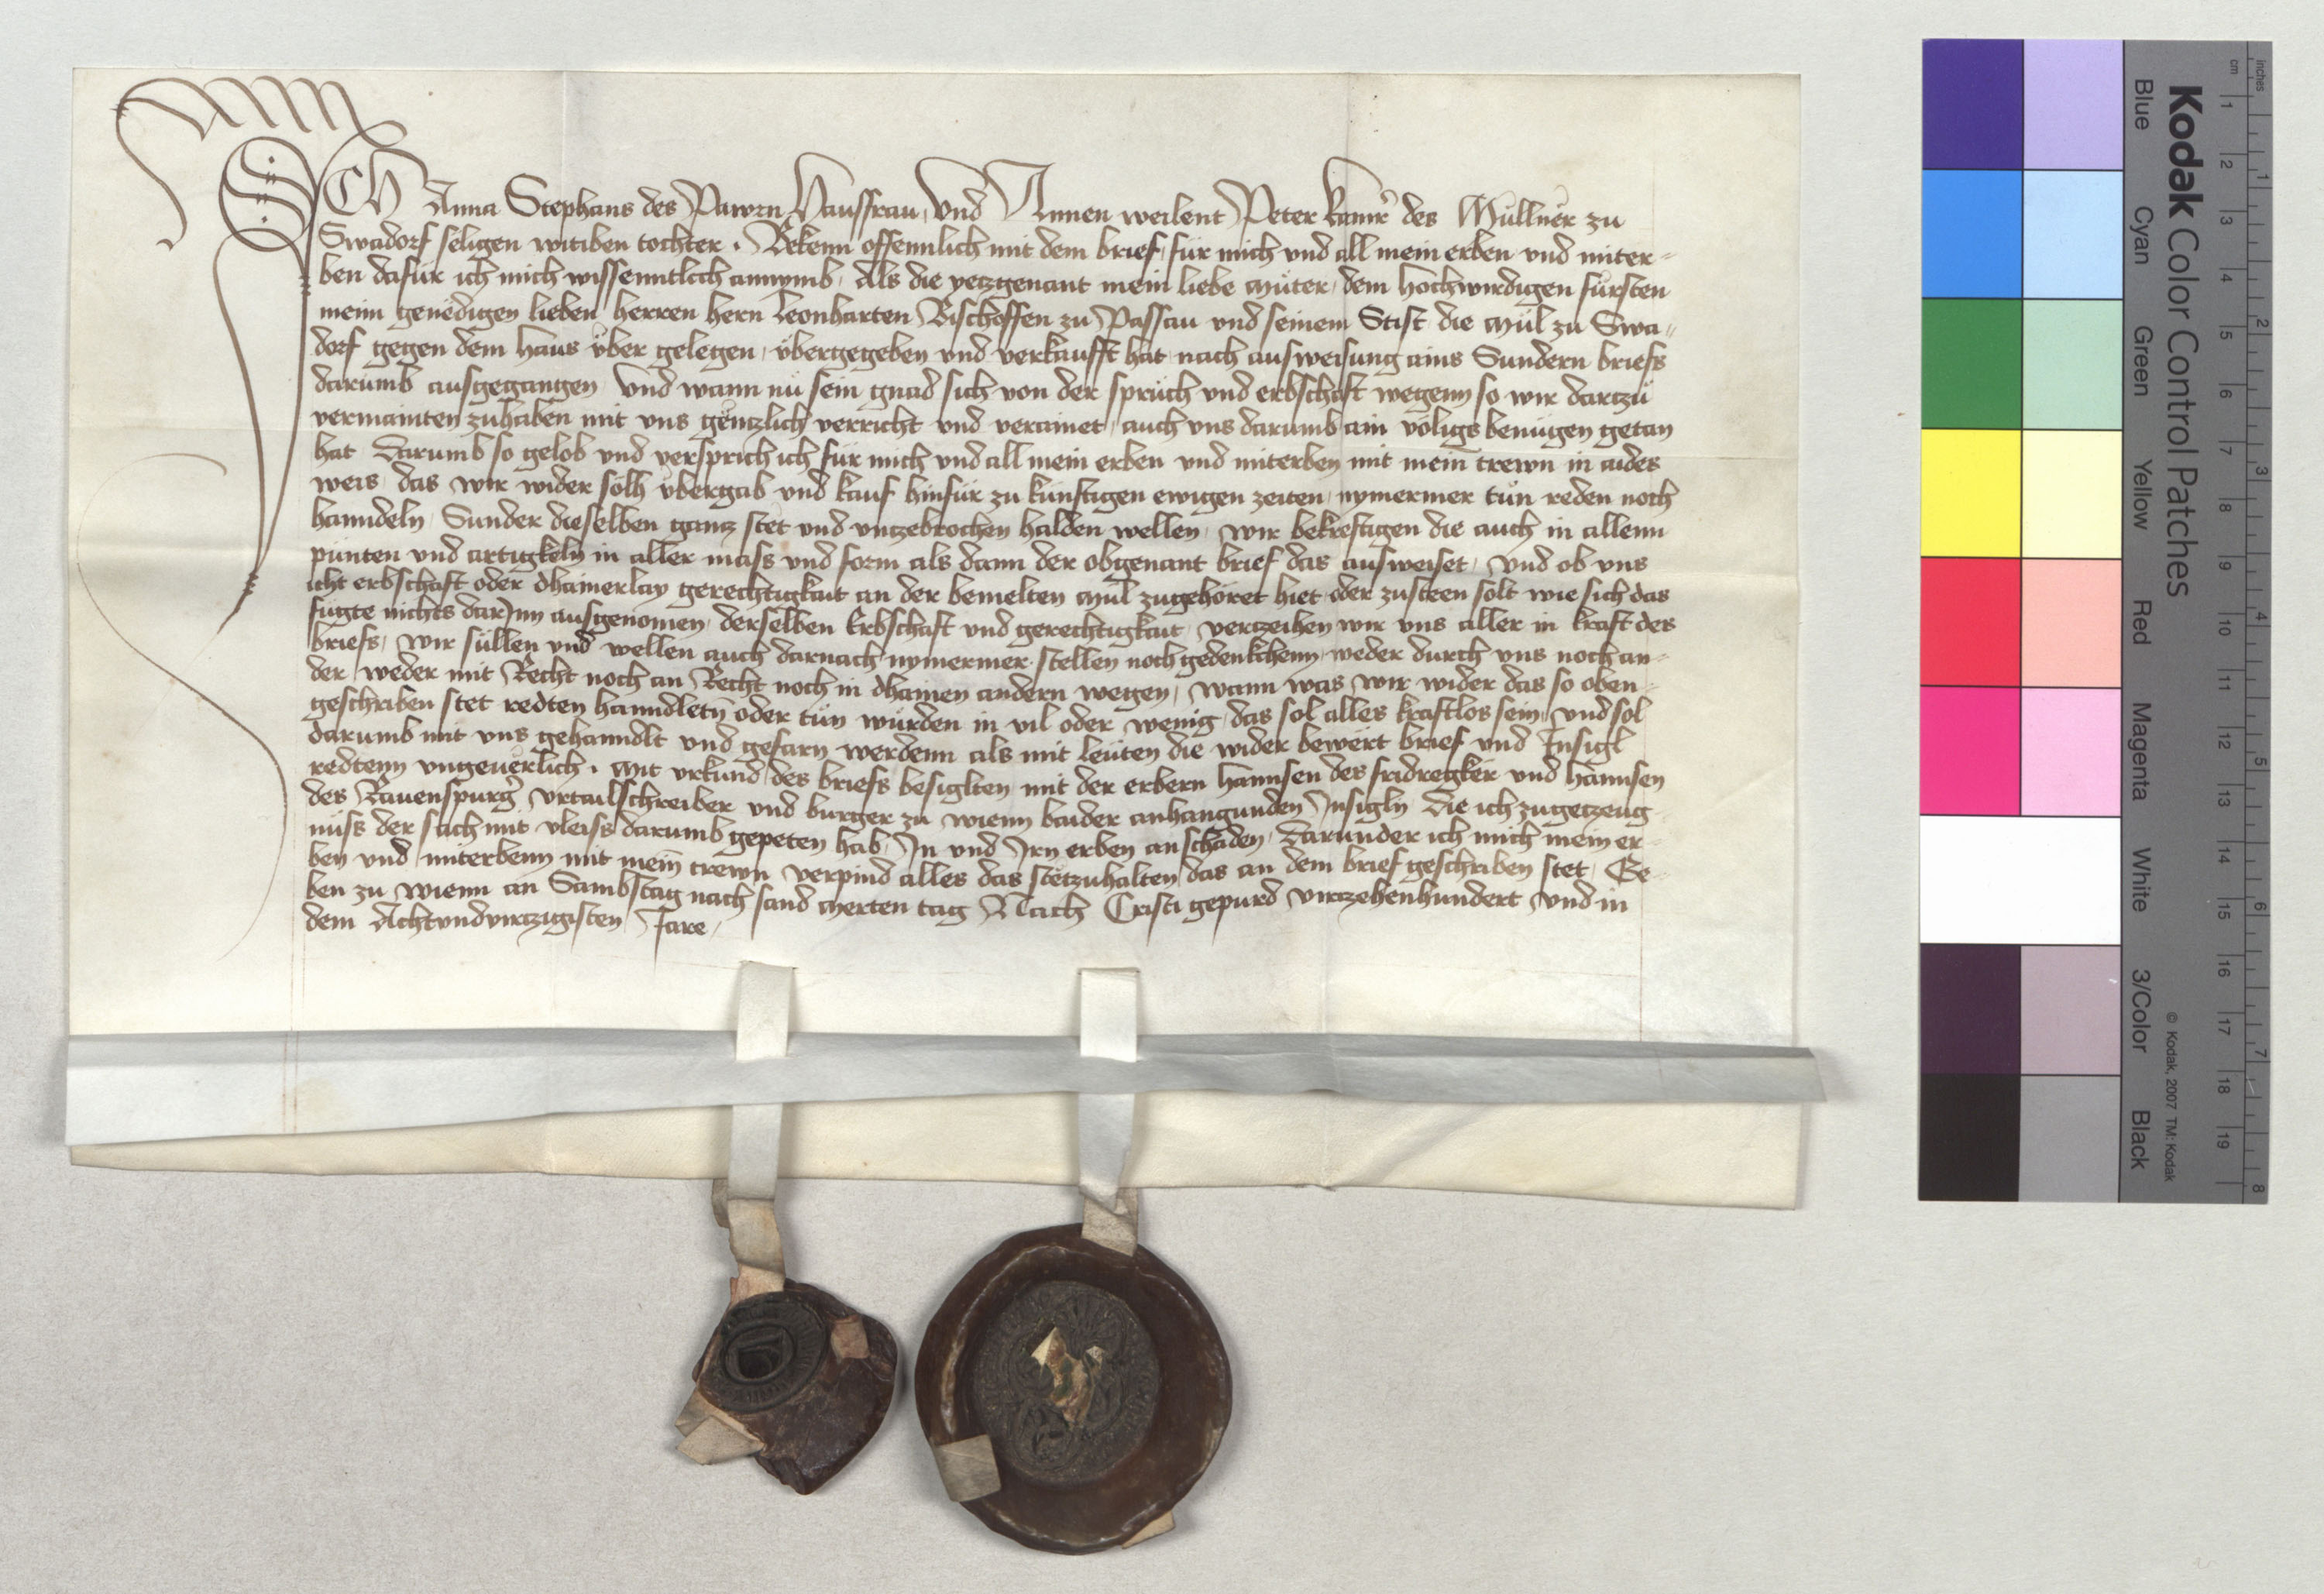 ICH Anna Stephans des Pawrn Hausfrau, vnd Annen weilent Peter kamrer des Müllner zu
Swadorf seligen witiben tochter. Bekenn offennlich mit dem brief, für mich vnd all mein erben vnd miter-
ben dafür ich mich wissenntlich annymb, Als die yetzgenant mein liebe Müter, dem hochwirdigen fürsten
meim genedigen lieben herren hern Leonharten Bischoffen zu Passau vnd seinem Stift die Mül zu Swa-
dorf gegen dem haus über gelegen, übergegeben vnd verkaufft hat, nach ausweisung ains Sundern briefs
darumb ausgegangen, Vnd wann nü sein gnad sich von der sprüch vnd erbschaft wegenn so wir dartzü
vermainten zuhaben mit vns gentzlich verricht vnd verainet, auch vns darumb ain völigs benügen getan
hat Darumb so gelob vnd versprich ich für mich vnd all mein erben vnd miterben mit mein trewn in aides
weis, das wir wider sölh übergab vnd kauf hinfür zu künftigen ewigen zeiten, nymermer tün reden noch
hanndeln, Sunder dieselben gantz stet vnd vntzebrochen halden wellen, wir bekreftigen die auch in allenn
punten vnd artigkeln in aller mass vnd form als dann der obgenant brief das ausweiset, vnd ob vns
icht erbschaft oder dhainerlay gerechtigkait an der bemelten Mül zugehöret hiet oder zusteen solt wie sich das
fügte nichts darInn ausgenomen, derselben Erbschaft vnd gerechtigkait, vertzeihen wir vns aller in kraft des
briefs, wir süllen vnd wellen auch darnach nymermer stellen noch gedenkchenn, weder durch vns noch an-
der weder mit Recht noch an Recht noch in dhainen andern wegen, wann was wir wider das so oben-
geschriben stet redten hanndleten oder tün würden in vil oder wenig, das sol alles kraftlos sein, vnd sol
darumb mit vns gehanndlt vnd gefarn werdenn als mit leüten die wider bewert brief vnd Insigl
redtenn vngeuerlich. Mit vrkund des briefs besiglten mit der erbern hannsen des fridregker vnd hannsen
des Rauenspurger vrtailschreiber vnd burger zu wienn baider anhangunden Insigln Die ich zugetzeug-
nüss der sach mit vleiss darumb gepeten hab, In vnd Irn erben an schaden, Darunder ich mich mein er-
ben vnd miterbenn mit mein trewn verpind alles das stetzuhalten das an dem brief geschriben stet, Ge-
ben zu wienn an Sambstag nach sand Merten tag Nach Cristi gepurd virtzehenhundert vnd in
dem Achtvndvirtzigisten Jare,
Kodak Color Control Patches
Blue Cyan Green Yellow Red Magenta White 3/Color Black
© Kodak, 2007 TM: Kodak
cm 1 2 3 4 5 6 7 8 9 10 11 12 13 14 15 16 17 18 19
inches 1 2 3 4 5 6 7 8